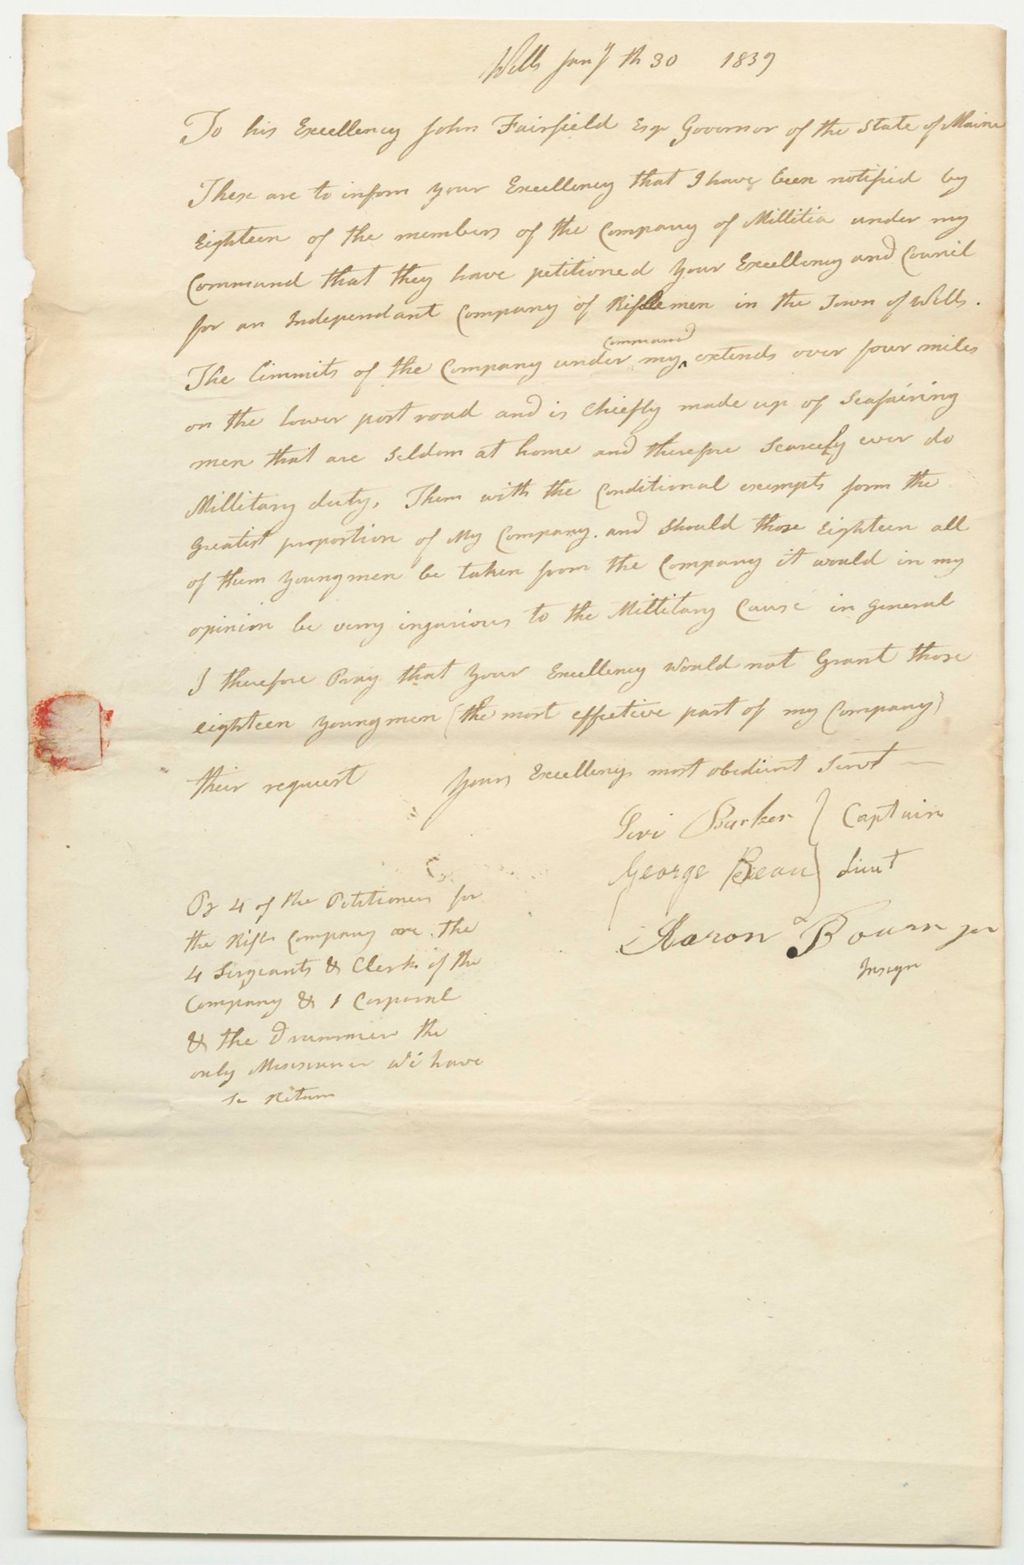 Wells Jany th 30 1839
To his Excellency John Fairfield Esqr Governor of the State of Maine
These are to inform your Excellency that I have been notified by
Eighteen of the members of the Company of Millitia under my
Command that they have petitioned your Excellency and Councel
for an Independant Company of Riflemen in the Town of Wells.
The limmits of the Company under my command extends over four miles
on the lower post road and is chiefly made up of Seafairing
men that are Seldom at home and therefore Scarcely ever do
Millitary duty, Them with the Conditional exempts form the
Greatest proportion of My Company. and Should those Eighteen all
of them young men be taken from the Company it would in my
opinion be very ingurious to the Millitary Cause in general
I therefore Pray that your Excellency would not Grant those
eighteen young men (the most effective part of my Company)
their request Yours Excellency most obedient Servt
Levi Barker } Captain
George Bean } Lieut
Aaron Bourn jr
Insign
Ps 4 of the Petitioners for
the Rifle Company are the
4 Sergeants & Clerk of the
Company & 1 Corporal
& the Drummer the
only Musicianer we have
to Return